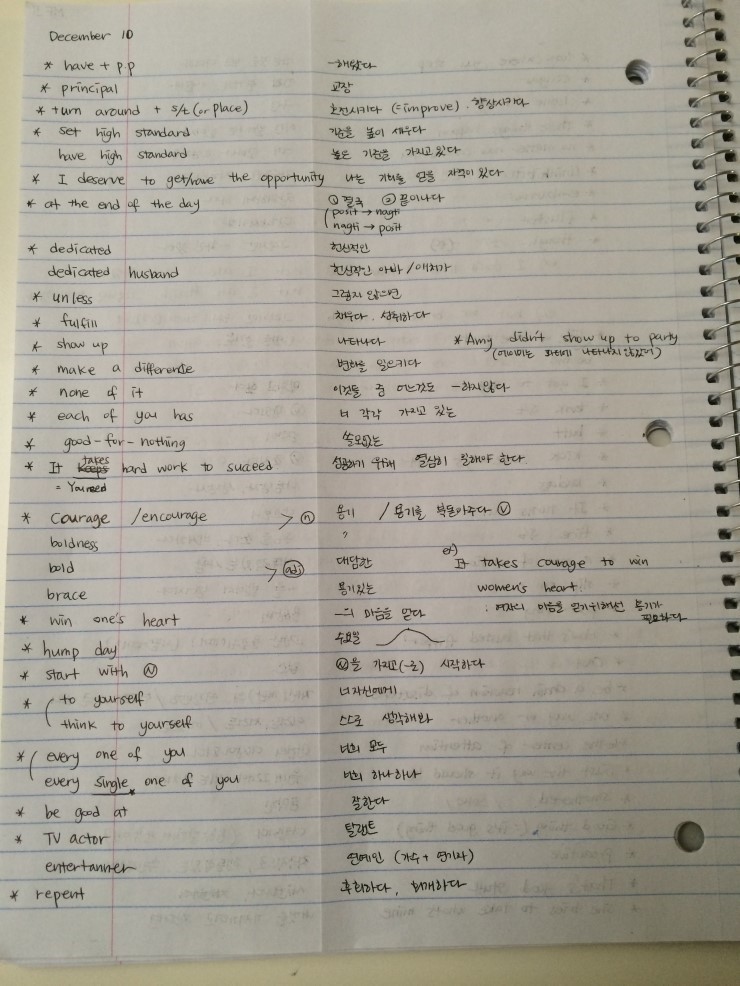 December 10
* have + p.p ~해왔다
* principal 교장
* turn around + s/t (or place) 호전시키다 (=improve). 향상시키다
* set high standard 기준을 높이 세우다
have high standard 높은 기준을 가지고 있다
* I deserve to get/have the opportunity 나는 기회를 얻을 자격이 있다
* at the end of the day ① 결국 ② 끝이나다
posit → nagti
nagti → posit
* dedicated 헌신적인
dedicated husband 헌신적인 아빠 / 애처가
* unless 그렇지 않으면
* fulfill 채우다. 성취하다
* show up 나타나다 * Amy didn't show up to party
(에이미는 파티에 나타나지 않았어)
* make a difference 변화를 일으키다
* none of it 이것들 중 어느것도 ~하지않다
* each of you has 너 각각 가지고 있는
* good-for-nothing 쓸모없는
* It keeps takes hard work to succeed 성공하기 위해 열심히 일해야 한다.
= You need
* courage / encourage > ⓝ 용기 / 용기를 북돋아주다 ⓥ
boldness "
bold > adj 대담한 ex) It takes courage to win
brace 용기있는 women's heart
* win one's heart ~의 마음을 얻다 : 여자의 마음을 얻기위해선 용기가 필요하다
* hump day 수요일
* start with Ⓝ Ⓝ을 가지고(~로) 시작하다
* ( to yourself 너 자신에게
think to yourself 스스로 생각해봐
* ( every one of you 너희 모두
every single one of you 너희 하나하나
* be good at 잘한다
* TV actor 탈랜트
entertanner 연예인 (가수 + 연기자)
* repent 후회하다, 회개하다